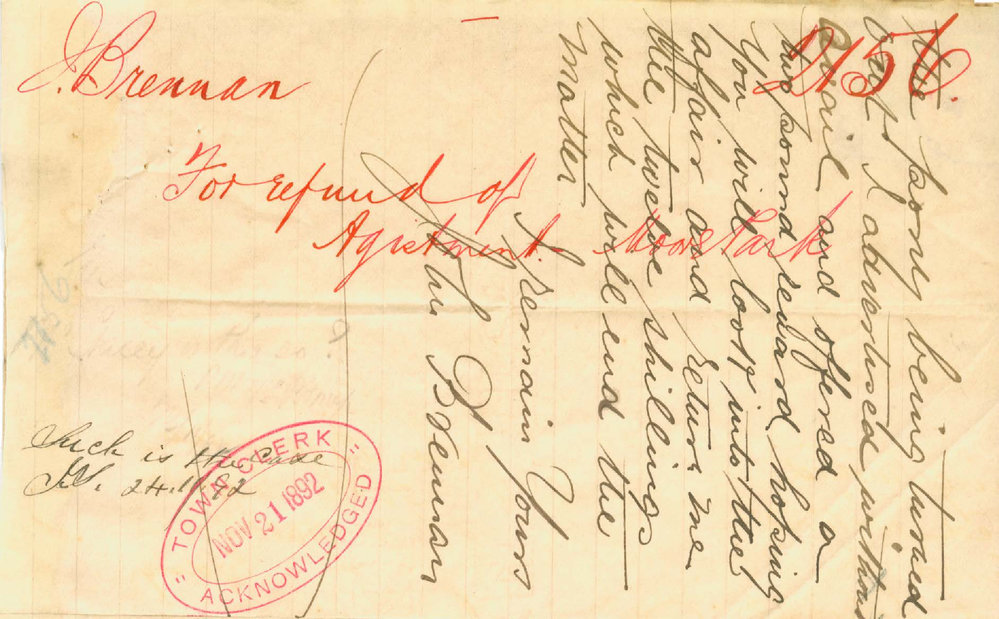 J. Brennan
2156.
For refund of
Agistment. Moore Park
the pony being turned
out I advertised without
avail and offered a
two pound reward hoping
You will look into the
affair and return me
the twelve shillings
which will end the
matter
I remain Yours
John Brennan
Such is the case
24.11.92
" TOWN CLERK "
NOV 21 1892
ACKNOWLEDGED